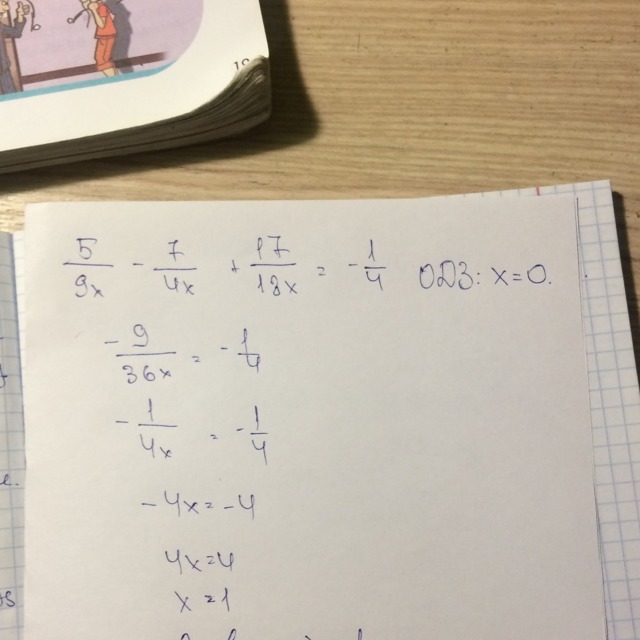 5/9x - 7/4x + 17/18x = - 1/4 ОДЗ: x=0.
- 9/36x = - 1/4
- 1/4x = - 1/4
-4x = -4
4x=4
x=1